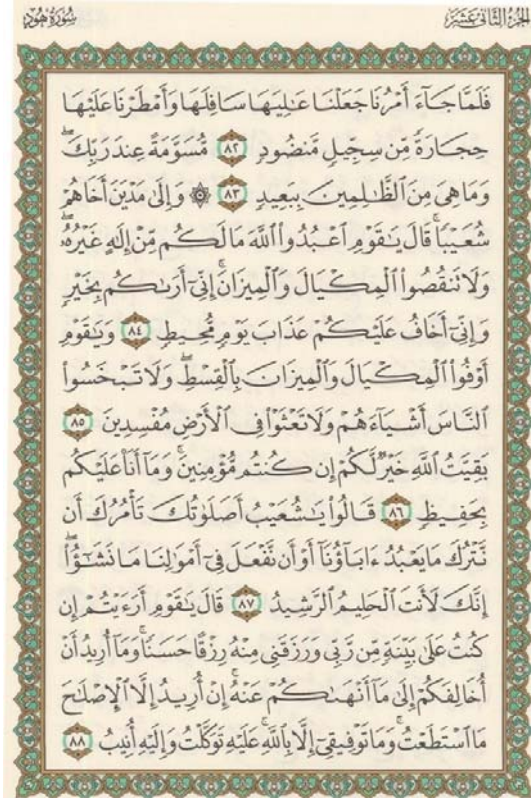 الجزء الثاني عشر
سورة هود
فَلَمَّا جَآءَ أَمْرُنَا جَعَلْنَا عَٰلِيَهَا سَافِلَهَا وَأَمْطَرْنَا عَلَيْهَا
حِجَارَةً مِّن سِجِّيلٍ مَّنضُودٍ ٨٢ مُّسَوَّمَةً عِندَ رَبِّكَۖ
وَمَا هِىَ مِنَ ٱلظَّٰلِمِينَ بِبَعِيدٍ ٨٣ ۞ وَإِلَىٰ مَدْيَنَ أَخَاهُمْ
شُعَيْبًاۚ قَالَ يَٰقَوْمِ ٱعْبُدُوا۟ ٱللَّهَ مَا لَكُم مِّنْ إِلَٰهٍ غَيْرُهُۥۖ
وَلَا تَنقُصُوا۟ ٱلْمِكْيَالَ وَٱلْمِيزَانَۚ إِنِّىٓ أَرَىٰكُم بِخَيْرٍ
وَإِنِّىٓ أَخَافُ عَلَيْكُمْ عَذَابَ يَوْمٍ مُّحِيطٍ ٨٤ وَيَٰقَوْمِ
أَوْفُوا۟ ٱلْمِكْيَالَ وَٱلْمِيزَانَ بِٱلْقِسْطِۖ وَلَا تَبْخَسُوا۟
ٱلنَّاسَ أَشْيَآءَهُمْ وَلَا تَعْثَوْا۟ فِى ٱلْأَرْضِ مُفْسِدِينَ ٨٥
بَقِيَّتُ ٱللَّهِ خَيْرٌ لَّكُمْ إِن كُنتُم مُّؤْمِنِينَۚ وَمَآ أَنَا۠ عَلَيْكُم
بِحَفِيظٍ ٨٦ قَالُوا۟ يَٰشُعَيْبُ أَصَلَوٰتُكَ تَأْمُرُكَ أَن
نَّتْرُكَ مَا يَعْبُدُ ءَابَآؤُنَآ أَوْ أَن نَّفْعَلَ فِىٓ أَمْوَٰلِنَا مَا نَشَٰٓؤُا۟ۖ
إِنَّكَ لَأَنتَ ٱلْحَلِيمُ ٱلرَّشِيدُ ٨٧ قَالَ يَٰقَوْمِ أَرَءَيْتُمْ إِن
كُنتُ عَلَىٰ بَيِّنَةٍ مِّن رَّبِّى وَرَزَقَنِى مِنْهُ رِزْقًا حَسَنًاۚ وَمَآ أُرِيدُ أَنْ
أُخَالِفَكُمْ إِلَىٰ مَآ أَنْهَىٰكُمْ عَنْهُۚ إِنْ أُرِيدُ إِلَّا ٱلْإِصْلَٰحَ
مَا ٱسْتَطَعْتُۚ وَمَا تَوْفِيقِىٓ إِلَّا بِٱللَّهِۚ عَلَيْهِ تَوَكَّلْتُ وَإِلَيْهِ أُنِيبُ ٨٨